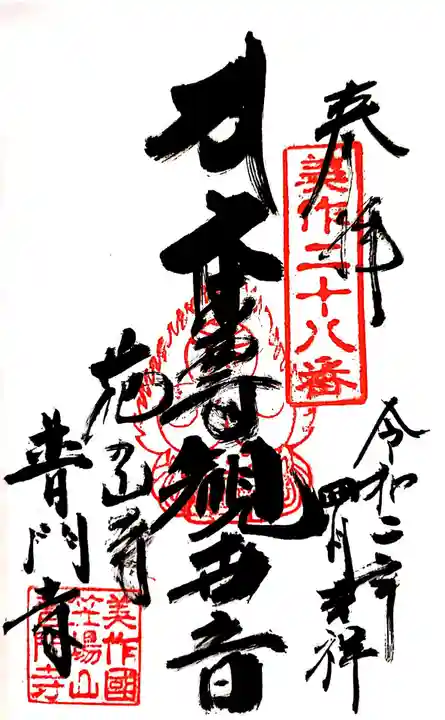 奉拝
美作二十八番
令和二年
四月吉祥
本尊観世音
花の山寺
普門寺
美作國
笠場山
普門寺